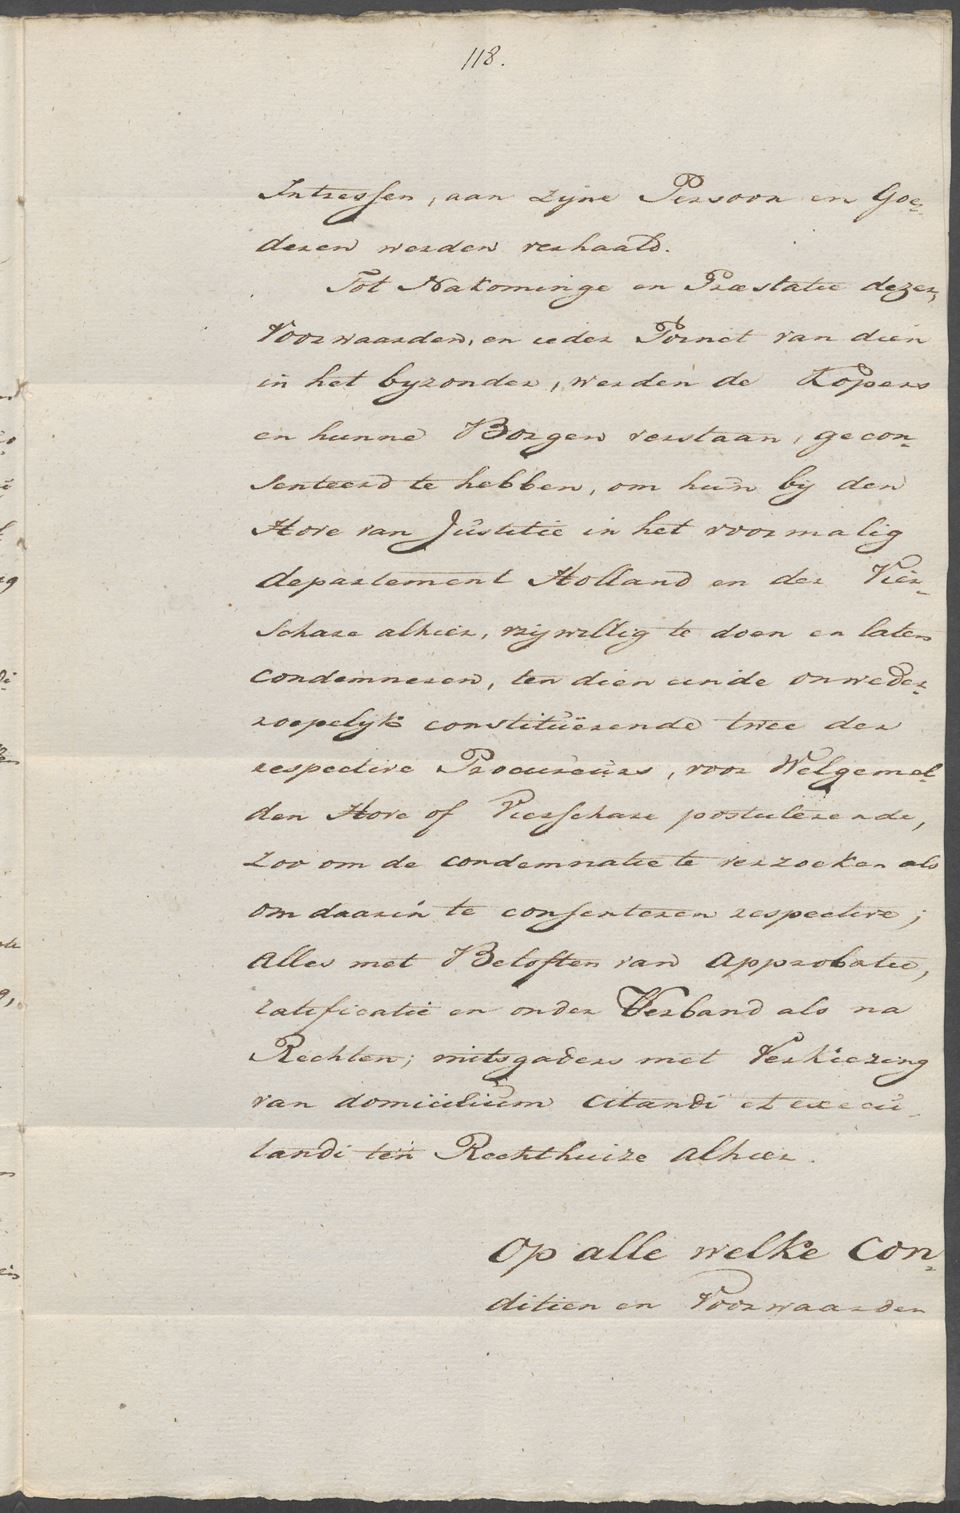 118.
Intressen, aan zyne Persoon en Goe-
deren werden verhaald.
Tot Nakominge en Præstatie dezer
Voorwaarden, en ieder Poinct van dien
in het byzonder, werden de Kopers
en hunne Borgen verstaan, gecon-
senteerd te hebben, om hun by den
Hove van Justitie in het voormalig
departement Holland en der Vier-
schare alhier, vrywillig te doen en laten
Condemneren, ten dien einde onweder-
roepelyk constituërende twee der
respective Procureurs, voor Welgemel-
den Hove of Vierschare postulerende,
zoo om de condemnatie te verzoeken als
om daarin te consenteren respective;
Alles met Beloften van Approbatie,
ratificatie en onder Verband als na
Rechten; mitsgaders met Verkiezing
van domicilium Citandi et execu-
tandi ten Rechthuize alhier.
Op alle welke Con-
ditien en Voorwaarden